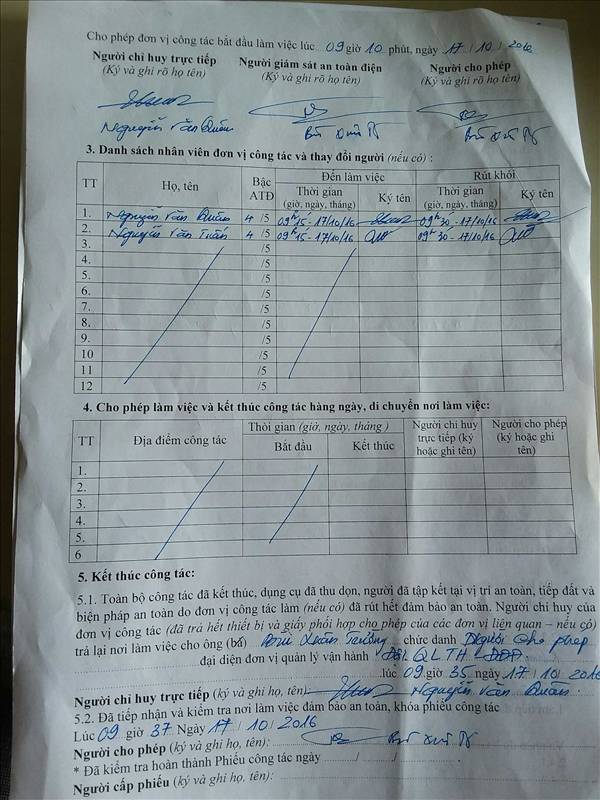 Cho phép đơn vị công tác bắt đầu làm việc lúc... 09 giờ 10 phút, ngày 17 / 10 / 2016
Người chỉ huy trực tiếp Người giám sát an toàn điện Người cho phép
(Ký và ghi rõ họ tên) (Ký và ghi rõ họ tên) (Ký và ghi rõ họ tên)
Nguyễn Văn Quân
3. Danh sách nhân viên đơn vị công tác và thay đổi người (nếu có) :
TT Họ, tên Bậc ATĐ Đến làm việc Rút khỏi
Thời gian (giờ, ngày, tháng) Ký tên Thời gian (giờ, ngày, tháng) Ký tên
1. Nguyễn Văn Quân 4 /5 09h15 - 17/10/16 09h30 - 17/10/16
2. Nguyễn Văn Tuấn 4 /5 09h15 - 17/10/16 09h30 - 17/10/16
3. /5
4. /5
5. /5
6. /5
7. /5
8. /5
9. /5
10 /5
11 /5
12 /5
4. Cho phép làm việc và kết thúc công tác hàng ngày, di chuyển nơi làm việc:
TT Địa điểm công tác Thời gian (giờ, ngày, tháng ) Người chỉ huy trực tiếp (ký hoặc ghi tên) Người cho phép (ký hoặc ghi tên)
Bắt đầu Kết thúc
1.
2.
3.
4.
5.
6
5. Kết thúc công tác:
5.1. Toàn bộ công tác đã kết thúc, dụng cụ đã thu dọn, người đã tập kết tại vị trí an toàn, tiếp đất và
biện pháp an toàn do đơn vị công tác làm (nếu có) đã rút hết đảm bảo an toàn. Người chỉ huy của
đơn vị công tác (đã trả hết thiết bị và giấy phối hợp cho phép của các đơn vị liên quan – nếu có)
trả lại nơi làm việc cho ông (bà) Bùi Xuân Trường chức danh Người cho phép
đại diện đơn vị quản lý vận hành QLTH
lúc 09 giờ 35 ngày 17 / 10 / 2016
Người chỉ huy trực tiếp (ký và ghi họ, tên) Nguyễn Văn Quân
5.2. Đã tiếp nhận và kiểm tra nơi làm việc đảm bảo an toàn, khóa phiếu công tác
Lúc 09 giờ 37 Ngày 17 / 10 / 2016
Người cho phép (ký và ghi họ, tên):
* Đã kiểm tra hoàn thành Phiếu công tác ngày ....... / ....... / .......
Người cấp phiếu (ký và ghi họ, tên):